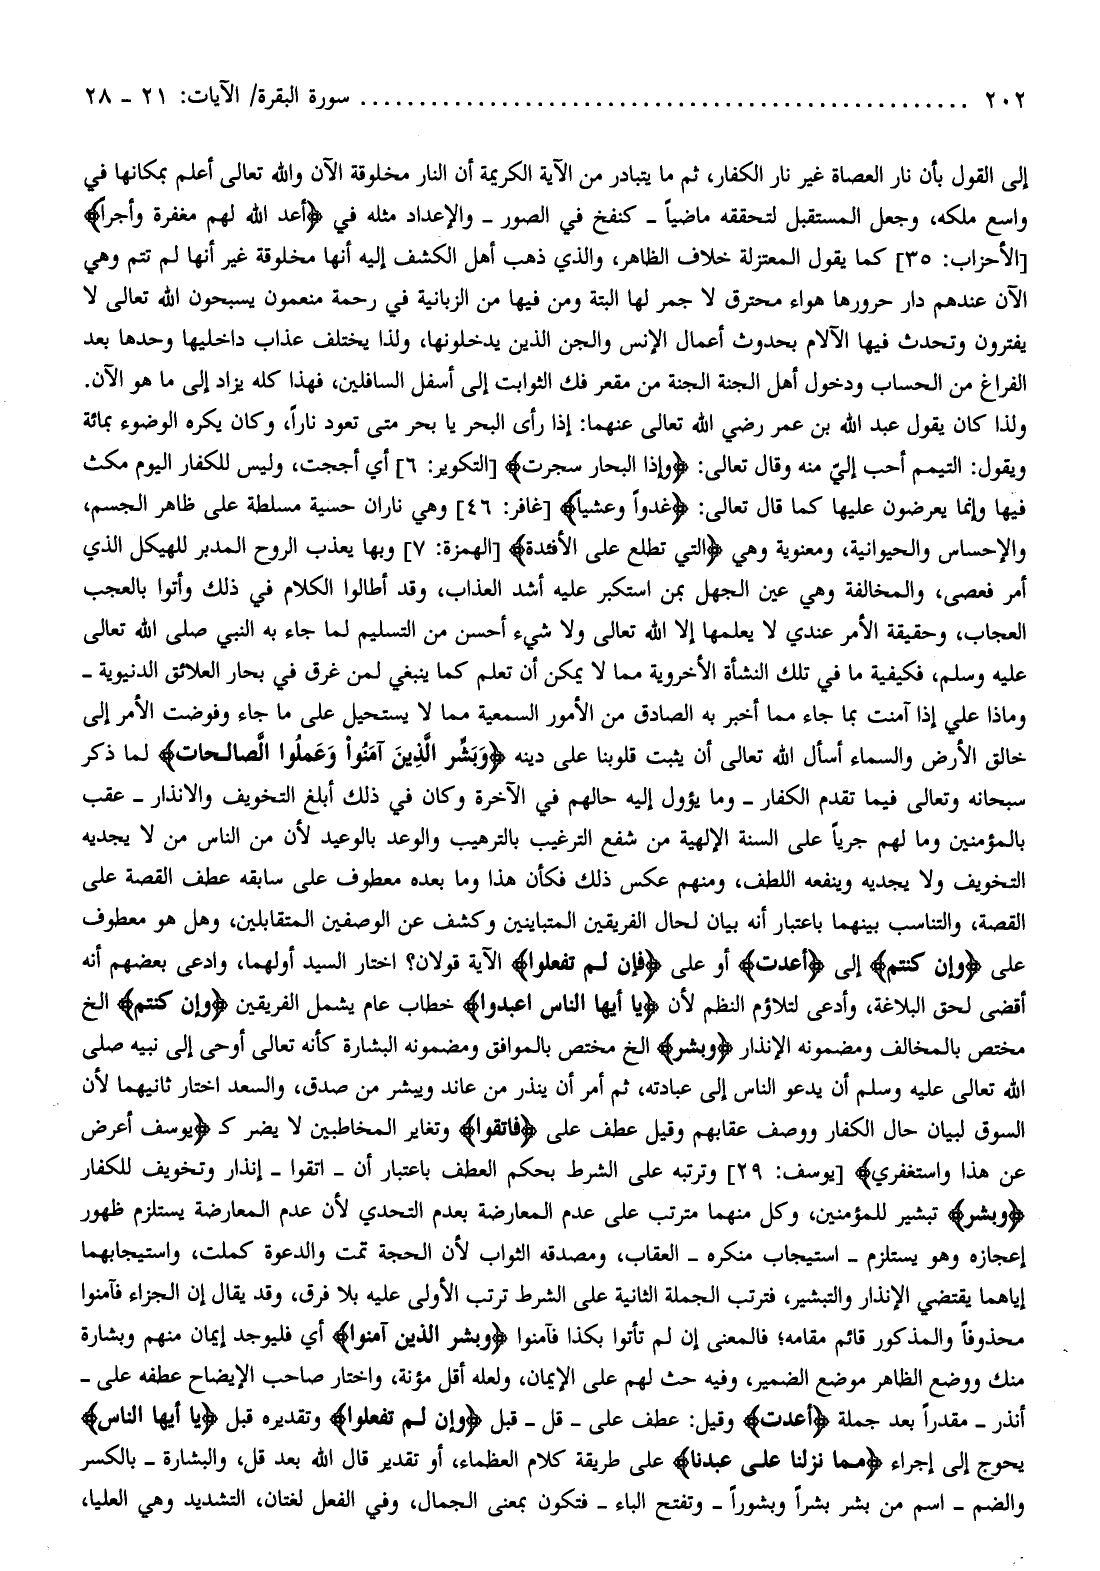 ٢٠٢ ................................................ سورة البقرة/ الآيات: ٢١ - ٢٨
إلى القول بأن نار العصاة غير نار الكفار، ثم ما يتبادر من الآية الكريمة أن النار مخلوقة الآن والله تعالى أعلم بمكانها في
واسع ملكه، وجعل المستقبل لتحققه ماضياً - كنفخ في الصور - والإعداد مثله في ﴿أعد الله لهم مغفرة وأجرا﴾
[الأحزاب: ٣٥] كما يقول المعتزلة خلاف الظاهر، والذي ذهب أهل الكشف إليه أنها مخلوقة غير أنها لم تتم وهي
الآن عندهم دار حرورها هواء محترق لا جمر لها البتة ومن فيها من الزبانية في رحمة منعمون يسبحون الله تعالى لا
يفترون وتحدث فيها الآلام بحدوث أعمال الإنس والجن الذين يدخلونها، ولذا يختلف عذاب داخليها وحدها بعد
الفراغ من الحساب ودخول أهل الجنة الجنة من مقعر فك الثوابت إلى أسفل السافلين، فهذا كله يزاد إلى ما هو الآن.
ولذا كان يقول عبد الله بن عمر رضي الله تعالى عنهما: إذا رأى البحر يا بحر متى تعود ناراً، وكان يكره الوضوء بمائة
ويقول: التيمم أحب إليّ منه وقال تعالى: ﴿وإذا البحار سجرت﴾ [التكوير: ٦] أي أججت، وليس للكفار اليوم مكث
فيها وإنما يعرضون عليها كما قال تعالى: ﴿غدواً وعشيا﴾ [غافر: ٤٦] وهي ناران حسية مسلطة على ظاهر الجسم،
والإحساس والحيوانية، ومعنوية وهي ﴿التي تطلع على الأفئدة﴾ [الهمزة: ٧] وبها يعذب الروح المدبر للهيكل الذي
أمر فعصى، والمخالفة وهي عين الجهل بمن استكبر عليه أشد العذاب، وقد أطالوا الكلام في ذلك وأتوا بالعجب
العجاب، وحقيقة الأمر عندي لا يعلمها إلا الله تعالى ولا شيء أحسن من التسليم لما جاء به النبي صلى الله تعالى
عليه وسلم، فكيفية ما في تلك النشأة الأخروية مما لا يمكن أن تعلم كما ينبغي لمن غرق في بحار العلائق الدنيوية -
وماذا علي إذا آمنت بما جاء مما أخبر به الصادق من الأمور السمعية مما لا يستحيل على ما جاء وفوضت الأمر إلى
خالق الأرض والسماء أسأل الله تعالى أن يثبت قلوبنا على دينه ﴿وَبَشِّر الَّذِينَ آمَنُواْ وَعَملُوا الَّصالـحات﴾ لما ذكر
سبحانه وتعالى فيما تقدم الكفار - وما يؤول إليه حالهم في الآخرة وكان في ذلك أبلغ التخويف والانذار - عقب
بالمؤمنين وما لهم جرياً على السنة الإلهية من شفع الترغيب بالترهيب والوعد بالوعيد لأن من الناس من لا يجديه
التخويف ولا يجديه وينفعه اللطف، ومنهم عكس ذلك فكأن هذا وما بعده معطوف على سابقه عطف القصة على
القصة، والتناسب بينهما باعتبار أنه بيان لحال الفريقين المتباينين وكشف عن الوصفين المتقابلين، وهل هو معطوف
على ﴿وإن كنتم﴾ إلى ﴿أعدت﴾ أو على ﴿فإن لم تفعلوا﴾ الآية قولان؟ اختار السيد أولهما، وادعى بعضهم أنه
أقضى لحق البلاغة، وأدعى لتلاؤم النظم لأن ﴿يا أيها الناس اعبدوا﴾ خطاب عام يشمل الفريقين ﴿وإن كنتم﴾ الخ
مختص بالمخالف ومضمونه الإنذار ﴿وبشر﴾ الخ مختص بالموافق ومضمونه البشارة كأنه تعالى أوحى إلى نبيه صلى
الله تعالى عليه وسلم أن يدعو الناس إلى عبادته، ثم أمر أن ينذر من عاند ويبشر من صدق، والسعد اختار ثانيهما لأن
السوق لبيان حال الكفار ووصف عقابهم وقيل عطف على ﴿فاتقوا﴾ وتغاير المخاطبين لا يضر كـ ﴿يوسف أعرض
عن هذا واستغفري﴾ [يوسف: ٢٩] وترتبه على الشرط بحكم العطف باعتبار أن - اتقوا - إنذار وتخويف للكفار
﴿وبشر﴾ تبشير للمؤمنين، وكل منهما مترتب على عدم المعارضة بعدم التحدي لأن عدم المعارضة يستلزم ظهور
إعجازه وهو يستلزم - استيجاب منكره - العقاب، ومصدقه الثواب لأن الحجة تمت والدعوة كملت، واستيجابهما
إياهما يقتضي الإنذار والتبشير، فترتب الجملة الثانية على الشرط ترتب الأولى عليه بلا فرق، وقد يقال إن الجزاء فآمنوا
محذوفاً والمذكور قائم مقامه؛ فالمعنى إن لم تأتوا بكذا فآمنوا ﴿وبشر الذين آمنوا﴾ أي فليوجد إيمان منهم وبشارة
منك ووضع الظاهر موضع الضمير، وفيه حث لهم على الإيمان، ولعله أقل مؤنة، واختار صاحب الإيضاح عطفه على -
أنذر - مقدراً بعد جملة ﴿أعدت﴾ وقيل: عطف على - قل - قبل ﴿وإن لم تفعلوا﴾ وتقديره قبل ﴿يا أيها الناس﴾
يحوج إلى إجراء ﴿مـما نزلنا علـى عبدنا﴾ على طريقة كلام العظماء، أو تقدير قال الله بعد قل، والبشارة - بالكسر
والضم - اسم من بشر بشراً وبشوراً - وتفتح الباء - فتكون بمعنى الجمال، وفي الفعل لغتان، التشديد وهي العليا،